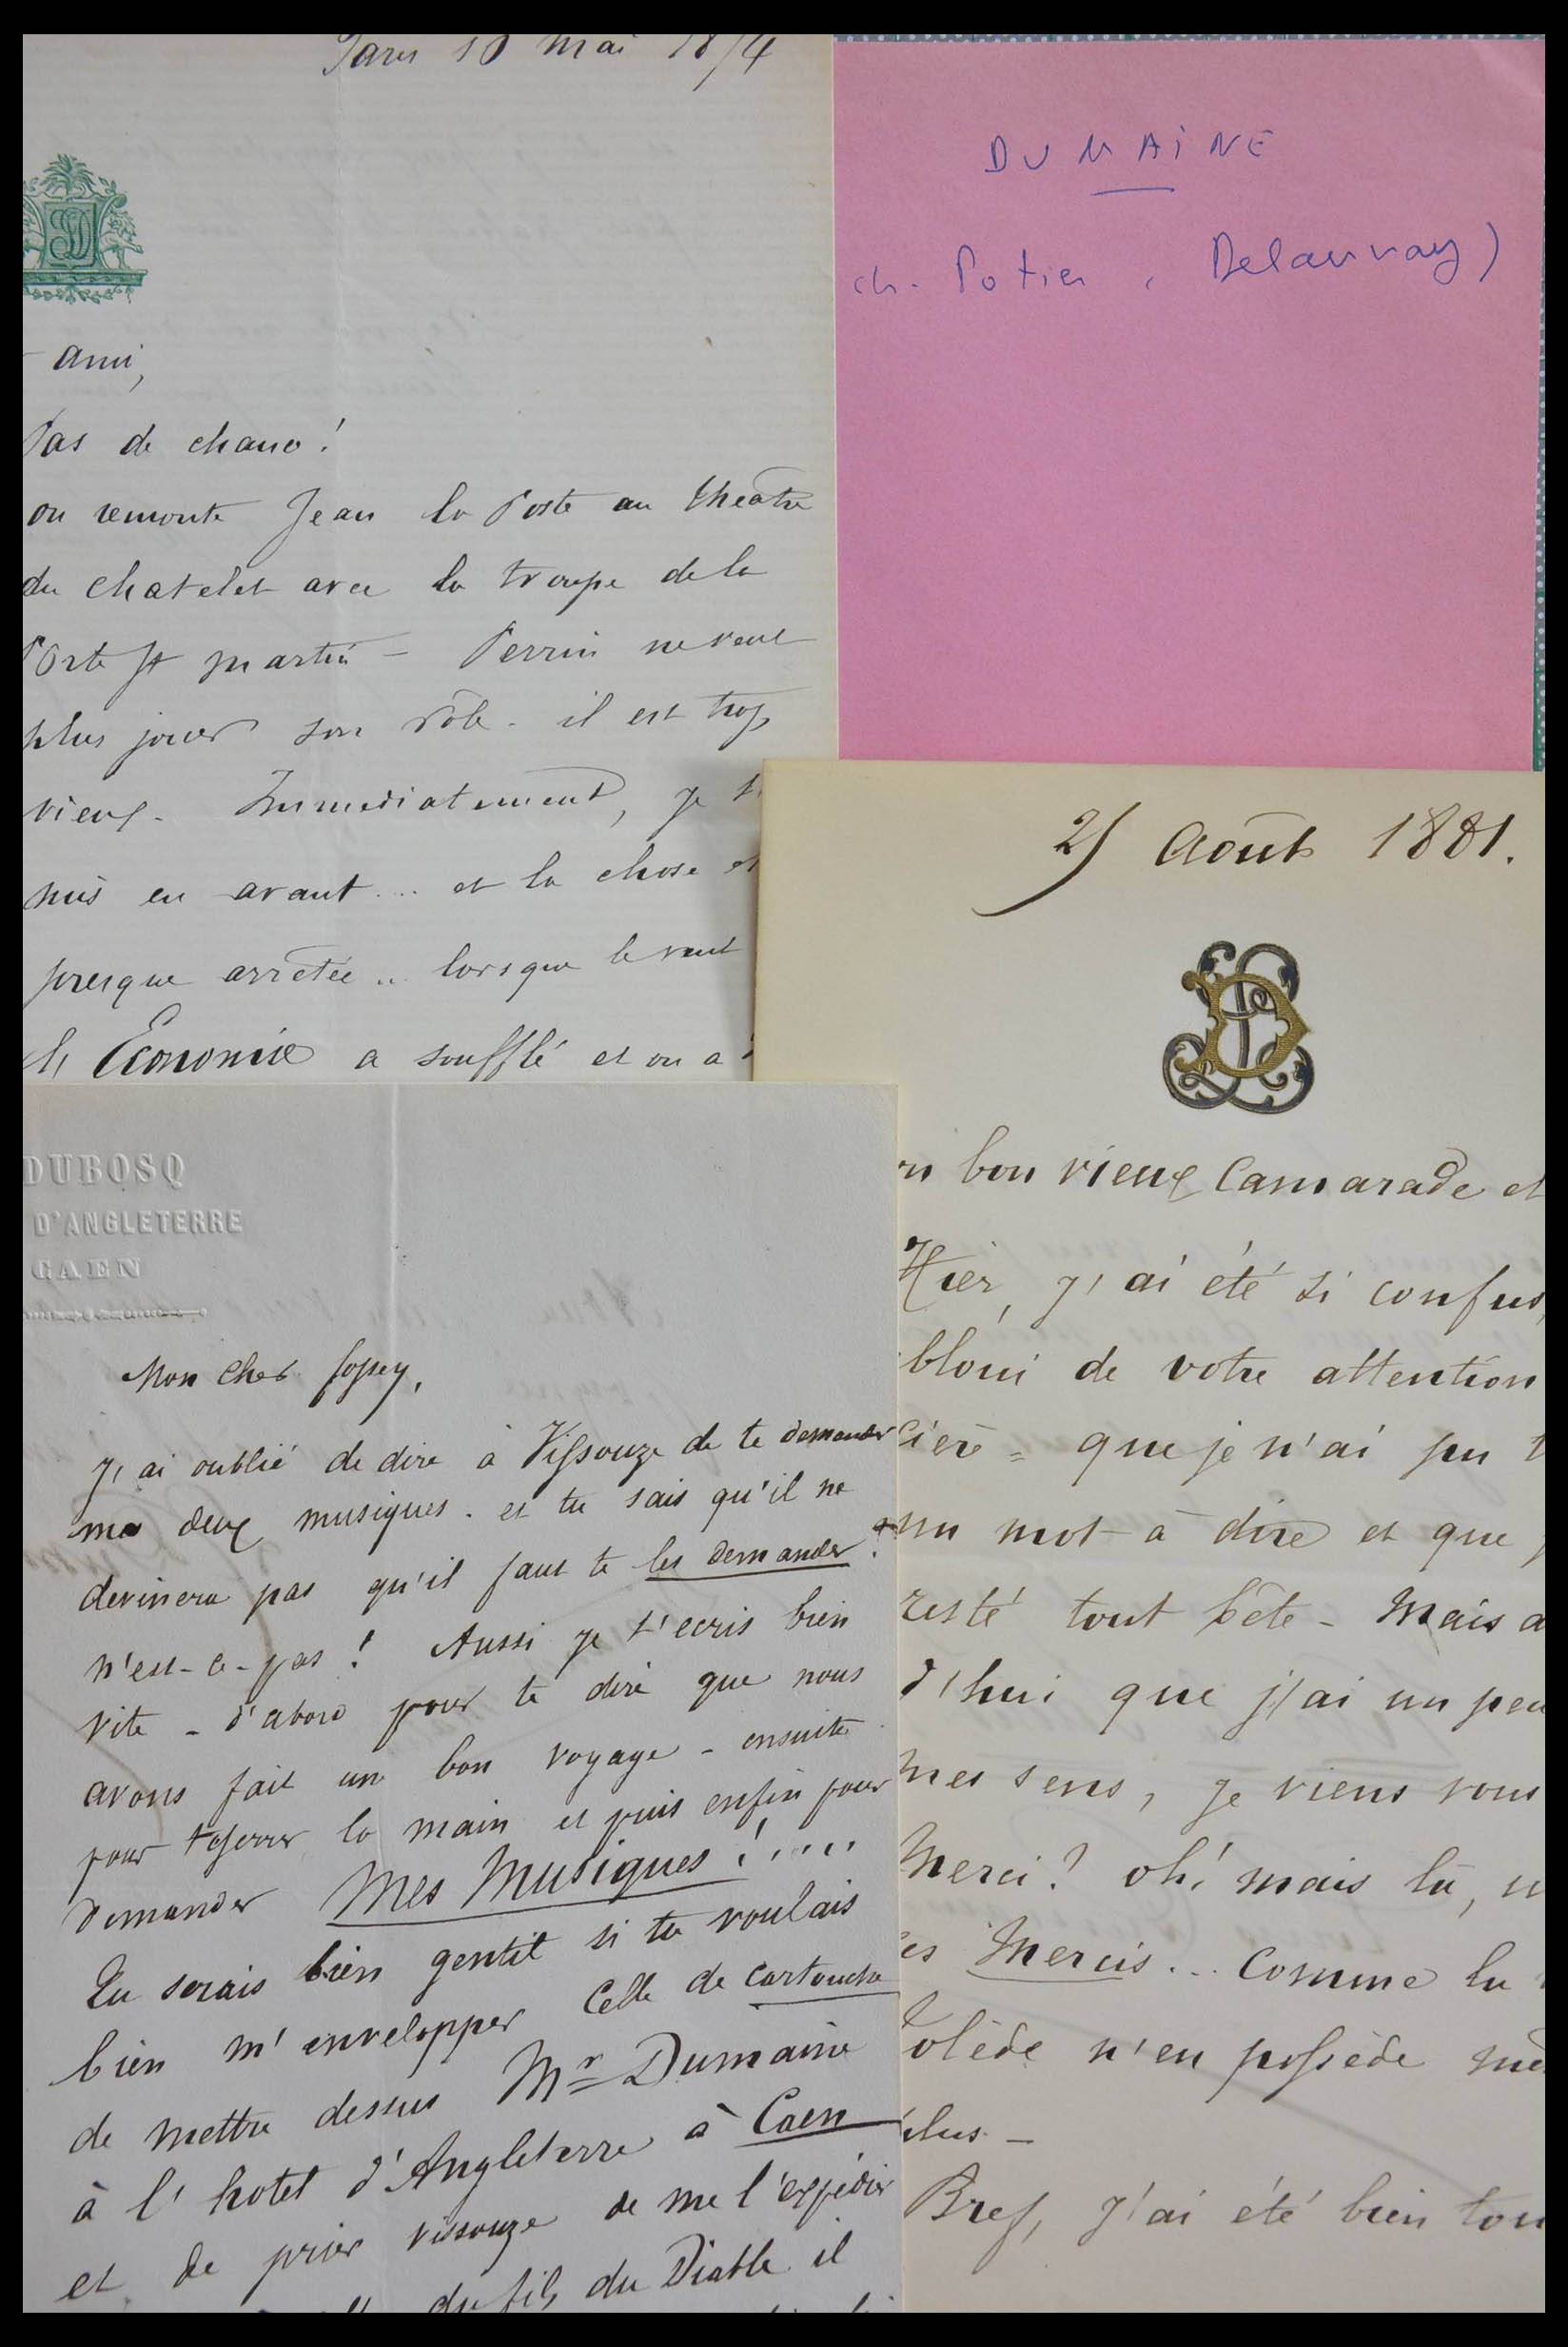 Paris 10 mai 1874
ami,
Pas de chance!
on remonte Jean la Poste au théatre
du chatelet avec la troupe de la
Porte St martin - Perrin ne veut
plus jouer son rôle - il est trop
vieux. Immediatement, je
mis en avant... et la chose
presque arrêtée.. lorsque le vent
Economie a soufflé et on a
DUMAINE
ch. Potier, Delaunay)
25 Août 1881.
bon vieux Camarade et
Hier, j'ai été si confus,
bloui de votre attention
cière = que je n'ai pu
un mot à dire et que
resté tout bête - Mais
d'hui que j'ai un peu
mes sens, je viens vous
Merci? oh! mais là,
es Mercis... Comme la
Tolède n'en possède
plus -
Bref, j'ai été bien
DUBOSQ
D'ANGLETERRE
CAEN
Mon cher fossey,
J'ai oublié de dire à Vissouze de te demander
me deux musiques. et tu sais qu'il ne
devinera pas qu'il faut te les demander!
n'est-ce-pas! Aussi je t'ecris bien
vite - d'abord pour te dire que nous
avons fait un bon voyage - ensuite
pour te serrer la main et puis enfin pour
demander Mes Musiques!....
Tu serais bien gentil si tu voulais
bien m'envelopper Celle de cartouche
de mettre dessus Mr Dumaine
à l'hotel d'Angleterre à Caen
et de prier vissouze de me l'expédier
du fils du Diable il